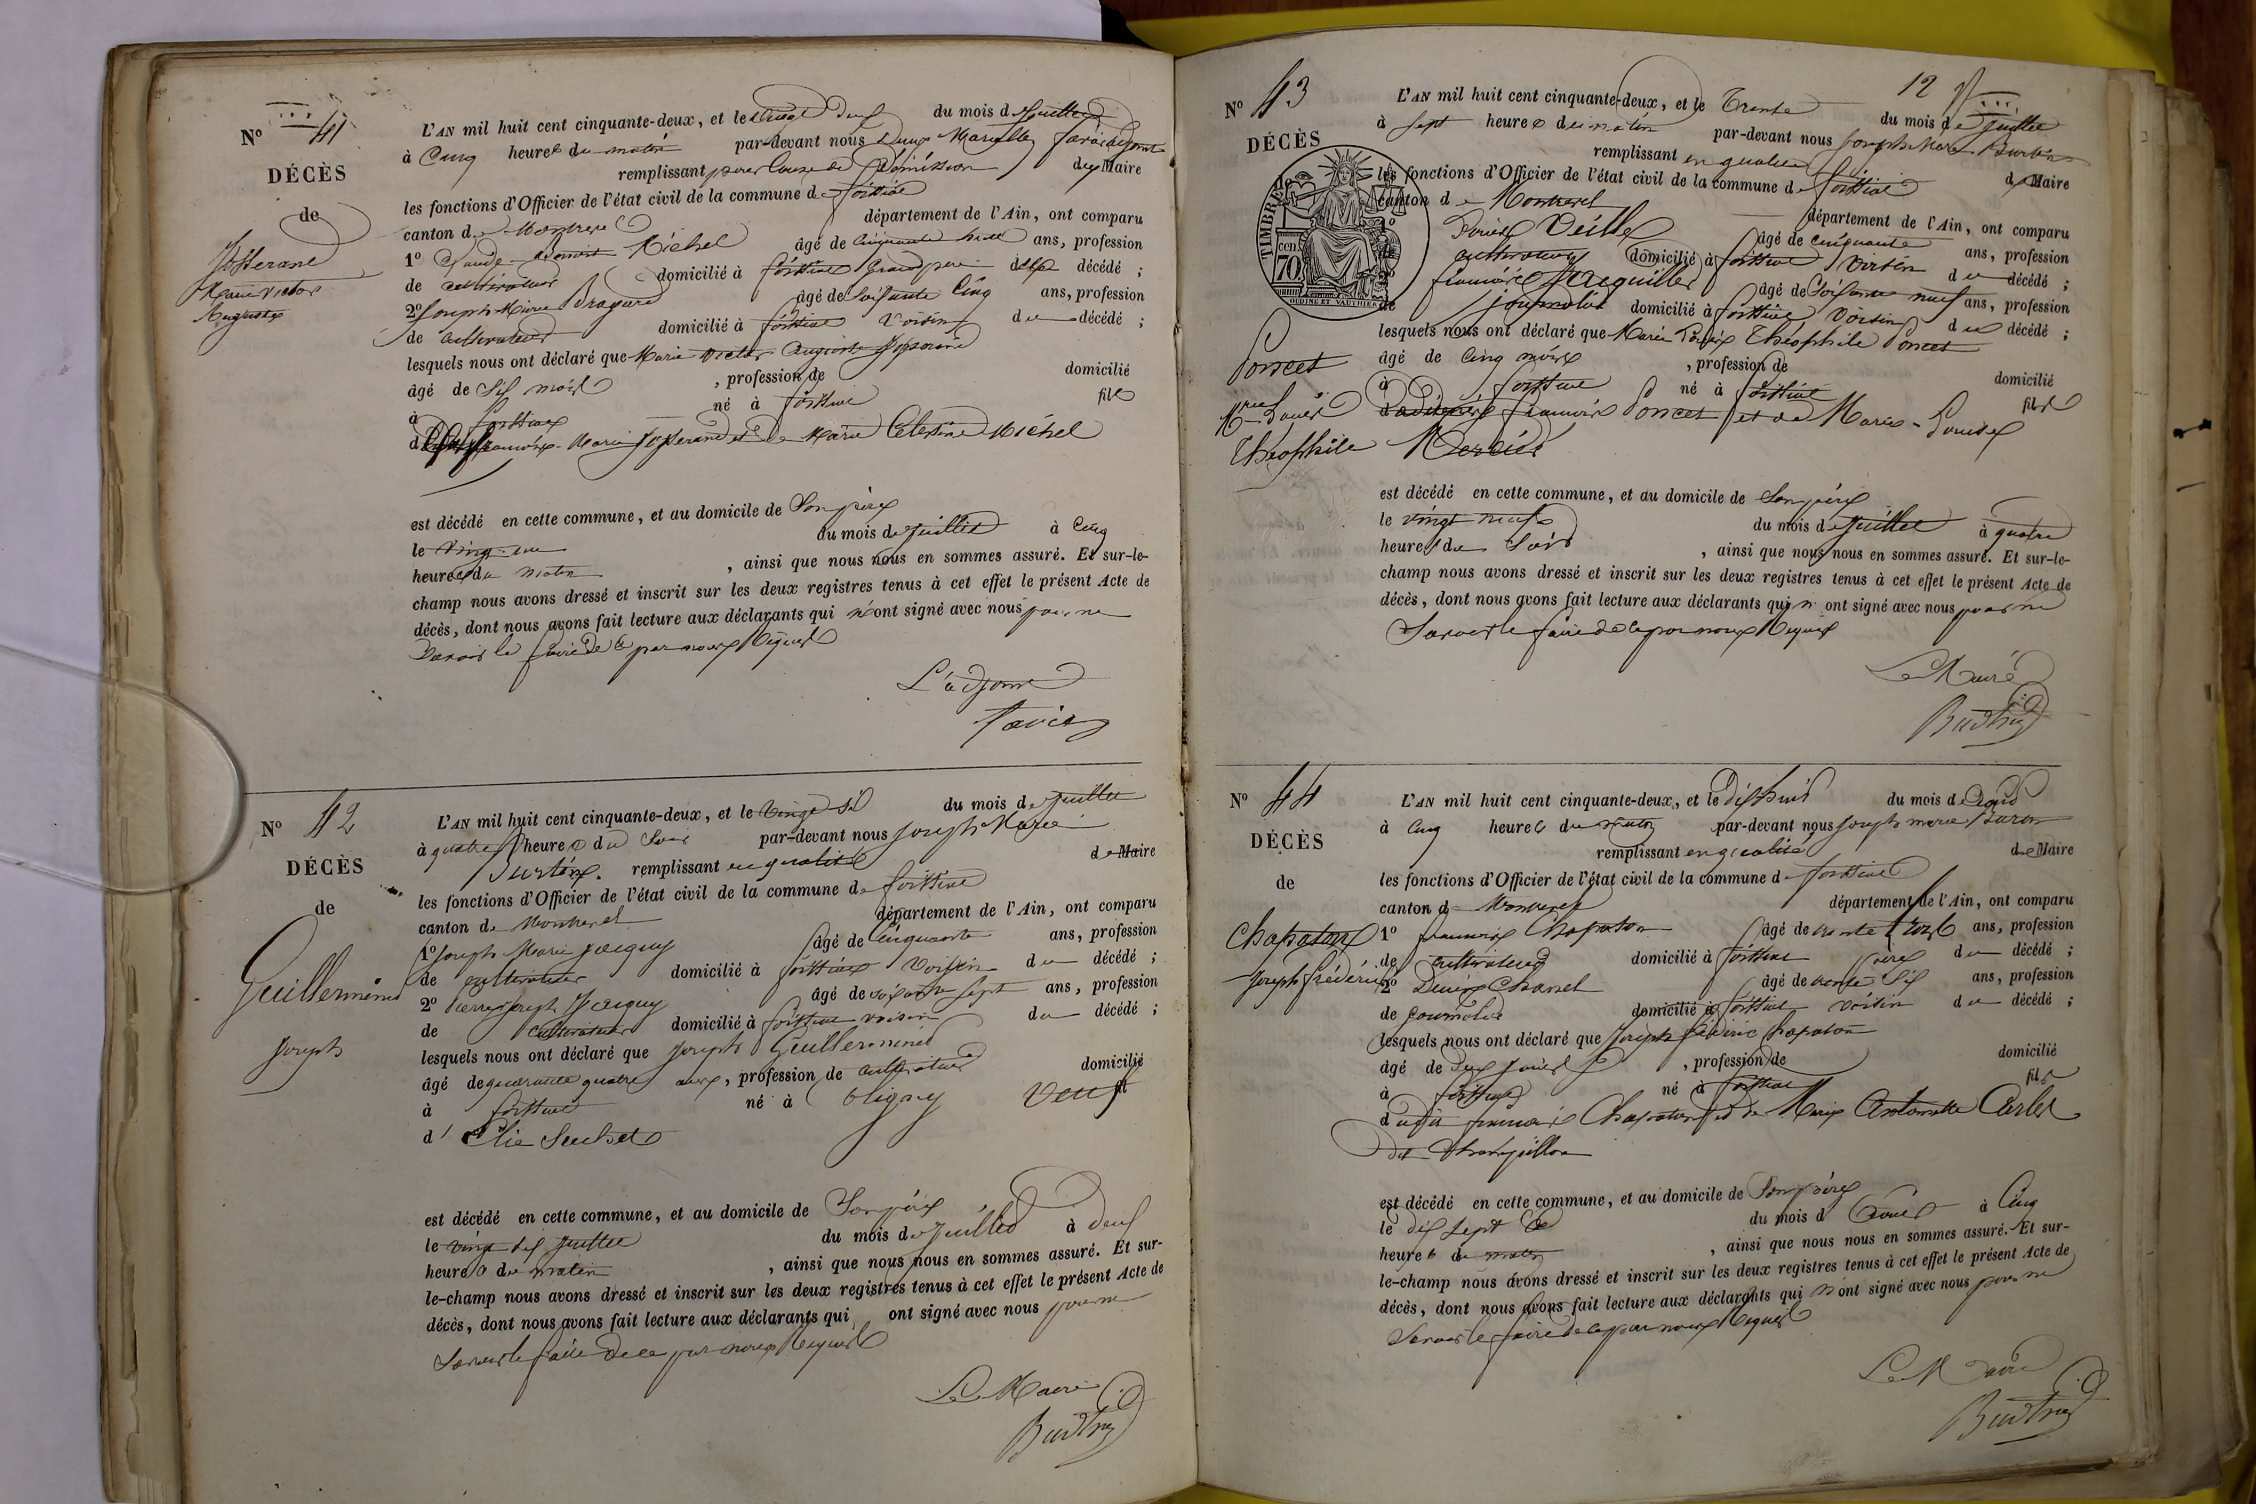 N° 41
DÉCÈS
de
Josserand
Marie Victor
Auguste
L'AN mil huit cent cinquante-deux, et le vingt deux du mois de Juillet
à Cinq heures du matin par-devant nous Marcelle Favier adjoint
remplissant pour Cause de Démission du Maire
les fonctions d'Officier de l'état civil de la commune de foissiat
canton de Montrevel département de l'Ain, ont comparu
1° Claude Benoit Michel âgé de Cinquante huit ans, profession
de cultivateur domicilié à foissiat Grand père du décédé ;
2° Joseph Marie Bragard âgé de Soixante Cinq ans, profession
de cultivateur domicilié à foissiat Voisin du décédé ;
lesquels nous ont déclaré que Marie Victor Auguste Josserand
âgé de Six mois , profession de domicilié
à foissiat né à foissiat fils
de françois Marie Josserand et de Marie Célestine Michel
est décédé en cette commune, et au domicile de Son père
le vingt un du mois de Juillet à Cinq
heures du matin , ainsi que nous nous en sommes assuré. Et sur-le-
champ nous avons dressé et inscrit sur les deux registres tenus à cet effet le présent Acte de
décès, dont nous avons fait lecture aux déclarants qui n'ont signé avec nous pour ne
Savoir le faire de ce par nous Requis
L'adjoint
Favier
N° 42
DÉCÈS
de
Guillerminet
Joseph
L'AN mil huit cent cinquante-deux, et le vingt Six du mois de Juillet
à quatre heures du Soir par-devant nous Joseph Marie
remplissant en qualité de Maire
les fonctions d'Officier de l'état civil de la commune de foissiat
canton de Montrevel département de l'Ain, ont comparu
1° Joseph Marie Jacquy âgé de Cinquante ans, profession
de cultivateur domicilié à foissiat Voisin du décédé ;
2° Pierre Joseph Jacquy âgé de sept ans, profession
de cultivateur domicilié à foissiat voisin du décédé ;
lesquels nous ont déclaré que Joseph Guillerminet
âgé de quarante quatre ans, profession de cultivateur domicilié
à foissiat né à Etigny Veuf
d'Elie Suchet
est décédé en cette commune, et au domicile de Son père
le vingt six Juillet du mois de Juillet à deux
heures du matin , ainsi que nous nous en sommes assuré. Et sur-
le-champ nous avons dressé et inscrit sur les deux registres tenus à cet effet le présent Acte de
décès, dont nous avons fait lecture aux déclarants qui ont signé avec nous pour ne
Savoir le faire de ce par nous Requis
Le Maire
12
N° 43
DÉCÈS
de
TIMBRE
CEN. 70
OUDINÉ ET VAUTHIER
Poncet
Marie Louis
Théophile
L'AN mil huit cent cinquante-deux, et le Trente du mois de Juillet
à Sept heures du matin par-devant nous Joseph Marie
remplissant en qualité de Maire
les fonctions d'Officier de l'état civil de la commune de foissiat
canton de Montrevel département de l'Ain, ont comparu
Denis Veille âgé de cinquante ans, profession
cultivateur domicilié à foissiat Voisin du décédé ;
françois âgé de Soixante neuf ans, profession
de journalier domicilié à foissiat Voisin du décédé ;
lesquels nous ont déclaré que Marie Louis Théophile Poncet
âgé de Cinq mois , profession de domicilié
à foissiat né à foissiat fils
de françois Poncet et de Marie-Louise
Mercier
est décédé en cette commune, et au domicile de Son père
le vingt neuf du mois de Juillet à quatre
heures du Soir , ainsi que nous nous en sommes assuré. Et sur-le-
champ nous avons dressé et inscrit sur les deux registres tenus à cet effet le présent Acte de
décès, dont nous avons fait lecture aux déclarants qui n'ont signé avec nous pour ne
Savoir le faire de ce par nous Requis
Le Maire
N° 44
DÉCÈS
de
Chapaton
Joseph frédéric
L'AN mil huit cent cinquante-deux, et le dix huit du mois d'Aoust
à Cinq heures du matin par-devant nous Joseph marie
remplissant en qualité de Maire
les fonctions d'Officier de l'état civil de la commune de foissiat
canton de Montrevel département de l'Ain, ont comparu
1° françois Chapaton âgé de trente trois ans, profession
de cultivateur domicilié à foissiat père du décédé ;
2° Denis Chanel âgé de trente Six ans, profession
de journalier domicilié à foissiat voisin du décédé ;
lesquels nous ont déclaré que Joseph frédéric Chapaton
âgé de Dix jours , profession de domicilié
à foissiat né à foissiat fils
dudit françois Chapaton et de Marie Antoinette Carlet
est décédé en cette commune, et au domicile de Son père
le dix sept du mois d'Aoust à Cinq
heures du matin , ainsi que nous nous en sommes assuré. Et sur-
le-champ nous avons dressé et inscrit sur les deux registres tenus à cet effet le présent Acte de
décès, dont nous avons fait lecture aux déclarants qui n'ont signé avec nous pour ne
Savoir le faire de ce par nous Requis
Le Maire